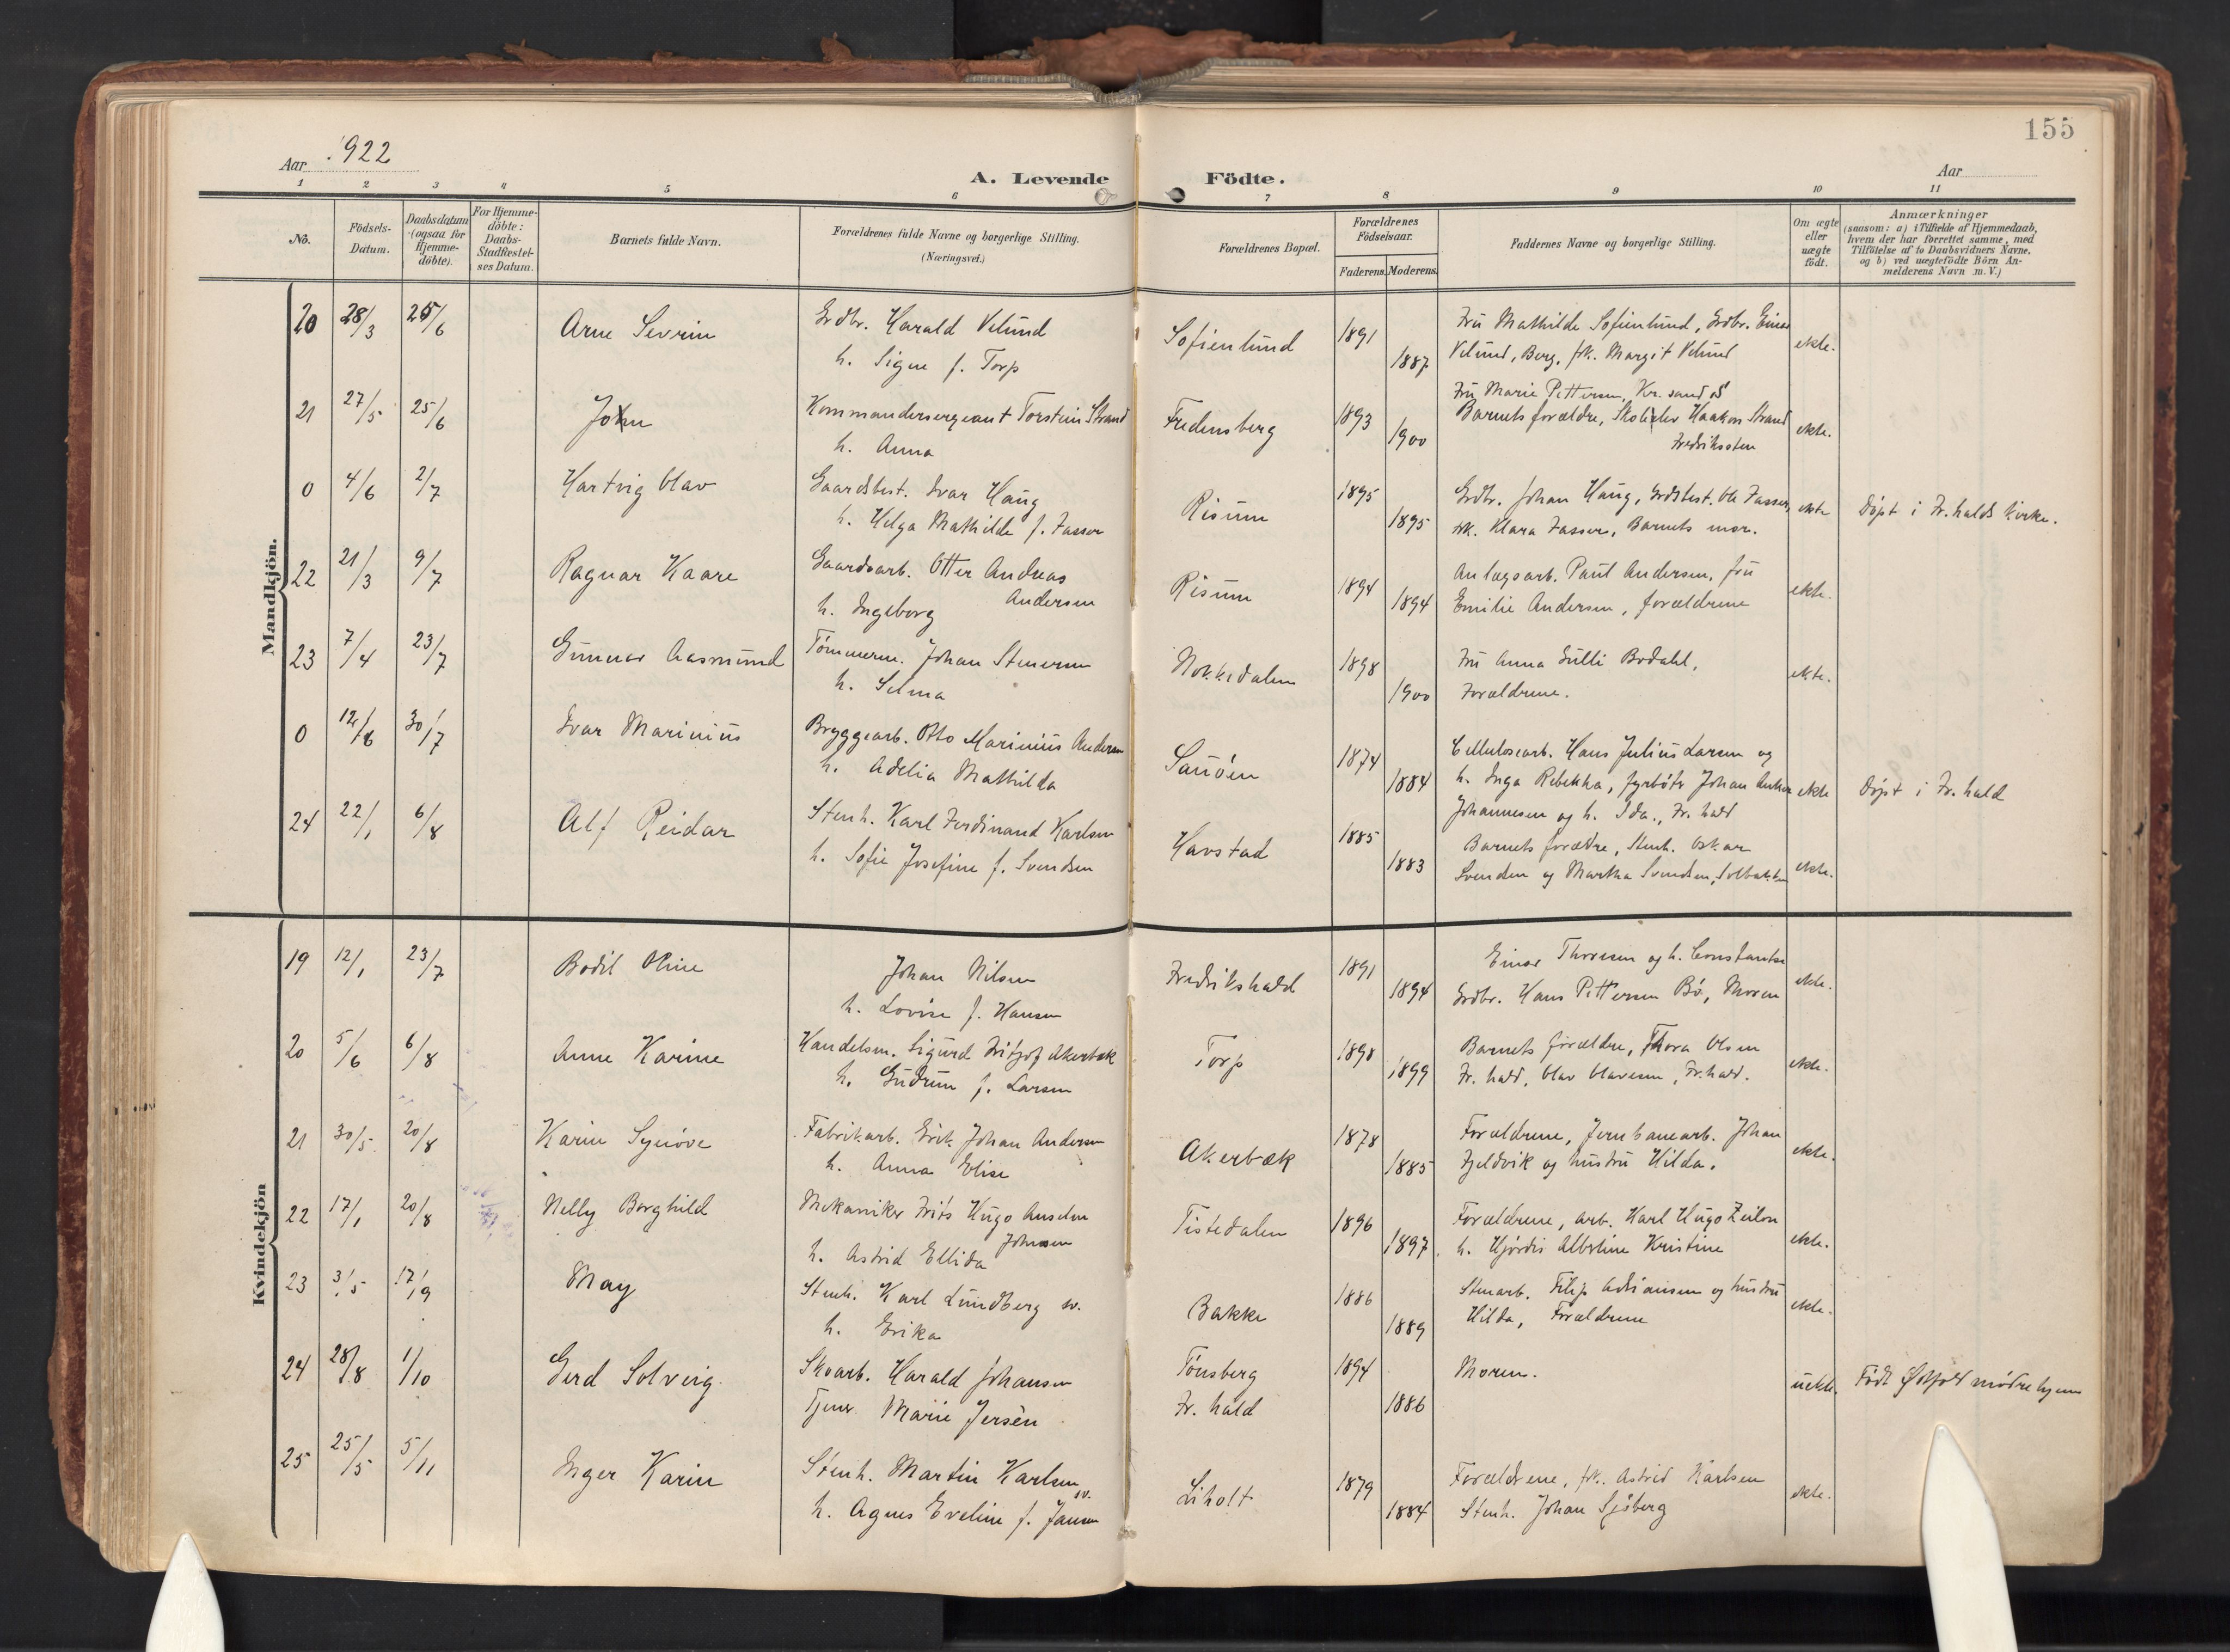 155
Aar 1922
A. Levende Födte.
Aar
1 2 3 4 5 6 7 8 9 10 11
No.
Födsels-Datum.
Daabsdatum (ogsaa for Hjemme-döbte).
For Hjemme-döbte: Daabs-Stadfæstel-ses Datum.
Barnets fulde Navn.
Forældrenes fulde Navne og borgerlige Stilling.
(Næringsvei.)
Forældrenes Bopæl.
Forældrenes Födselsaar.
Faderens. Moderens.
Faddernes Navne og borgerlige Stilling.
Om ægte eller uægte födt.
Anmærkninger
(saasom: a) i Tilfælde af Hjemmedaab,
hvem der har forrettet samme, med
Tilföielse af to Daabsvidners Navne,
og b) ved uægtefödte Börn An-
melderens Navn m. V.)
Mandkjön.
20 28/3 25/6 Arne Sevrin Grdbr. Harald Velund Sofienlund 1891 Fru Mathilde Sofienlund, Grdbr. Einar ekte.
h. Signe f. Torp 1887 Velund, Berg, frk. Margit Velund
Fru Marie Pettersen, Kr.sand S
21 27/5 25/6 John Kommandersergeant Torstein Strand Fredensberg 1893 Barnets forældre, Skoleelev Haakon Strand ekte.
h. Anna 1900 Fredriksten
0 4/6 2/7 Hartvig Olav Gaardbest. Ivar Haug Risum 1895 Grdbr. Johan Haug, Grdbest. Ole Fasser, ekte Döpt i Fr.halds kirke.
h. Helga Mathilde f. Fasser 1895 frk. Klara Fasser, Barnets mor.
22 21/3 9/7 Ragnar Kaare Gaardsarb. Otter Andreas Risum 1894 Anlægsarb. Paul Andersen, fru ekte.
Andersen
h. Ingeborg 1894 Emilie Andersen, forældrene
23 7/4 23/7 Gunnar Aasmund Tømmerm. Johan Stenersen Nokkedalen 1898 Fru Anna Gulli Bødahl, ekte.
h. Selma 1900 Forældrene.
0 12/6 30/7 Ivar Marinius Bryggearb. Otto Marinius Andersen Sauøen 1874 Cellulosearb. Hans Julius Larsen og ekte Döpt i Fr.hald
h. Adelia Mathilda 1884 h. Inga Rebekka, fyrbøter Johan Anker
Johannesen og h. Ida., Fr.hald
24 22/1 6/8 Alf Reidar Stenh. Karl Ferdinand Karlsen Havstad 1885 Barnets forældre, Stenh. Oskar ekte.
h. Sofie Josefine f. Svendsen 1883 Svendsen og Martha Svendsen, Solbakken
Kvindekjön
19 12/1 23/7 Bodil Oline Johan Nilsen Fredrikshald 1891 Einar Thoresen og h. Constantse ekte.
h. Lovise f. Hansen 1894 Grdbr. Hans Pettersen Bø, Moren
20 5/6 6/8 Anne Karine Handelsm. Sigurd Fritjof Akerbæk Torp 1898 Barnets forældre, Thora Olsen ekte.
h. Gudrun f. Larsen 1899 Fr.hald, Olav Olavesen, Fr.hald.
21 30/5 20/8 Karin Synøve Fabrikarb. Erik Johan Andersen Akerbæk 1878 Forældrene, Jernbanearb. Johan ekte.
h. Anna Elise 1885 Fjeldvik og hustru Hilda.
22 17/1 20/8 Nelly Borghild Mekaniker Frits Hugo Anselm Tistedalen 1896 Forældrene, arb. Karl Hugo Zeilon ekte.
Johnsen
h. Astrid Ellida 1897 h. Hjørdis Albertine Kristine
23 3/5 17/9 May Stenh. Karl Lundberg sv. Bakke 1886 Stenarb. Filip Adriansen og hustru ekte.
h. Erika 1889 Hilda, Forældrene
24 28/8 1/10 Gerd Solveig. Skoarb. Harald Johansen Tønsberg 1894 Moren. uekte. Födt Østfold mødrehjem
Tjener Marie Jersèn Fr.hald 1886
25 25/5 5/11 Inger Karin Stenh. Martin Karlsen sv. Liholt 1879 Forældrene, frk. Astrid Karlsen ekte.
h. Agnes Eveline f. Jansen 1884 Stenh. Johan Sjøberg